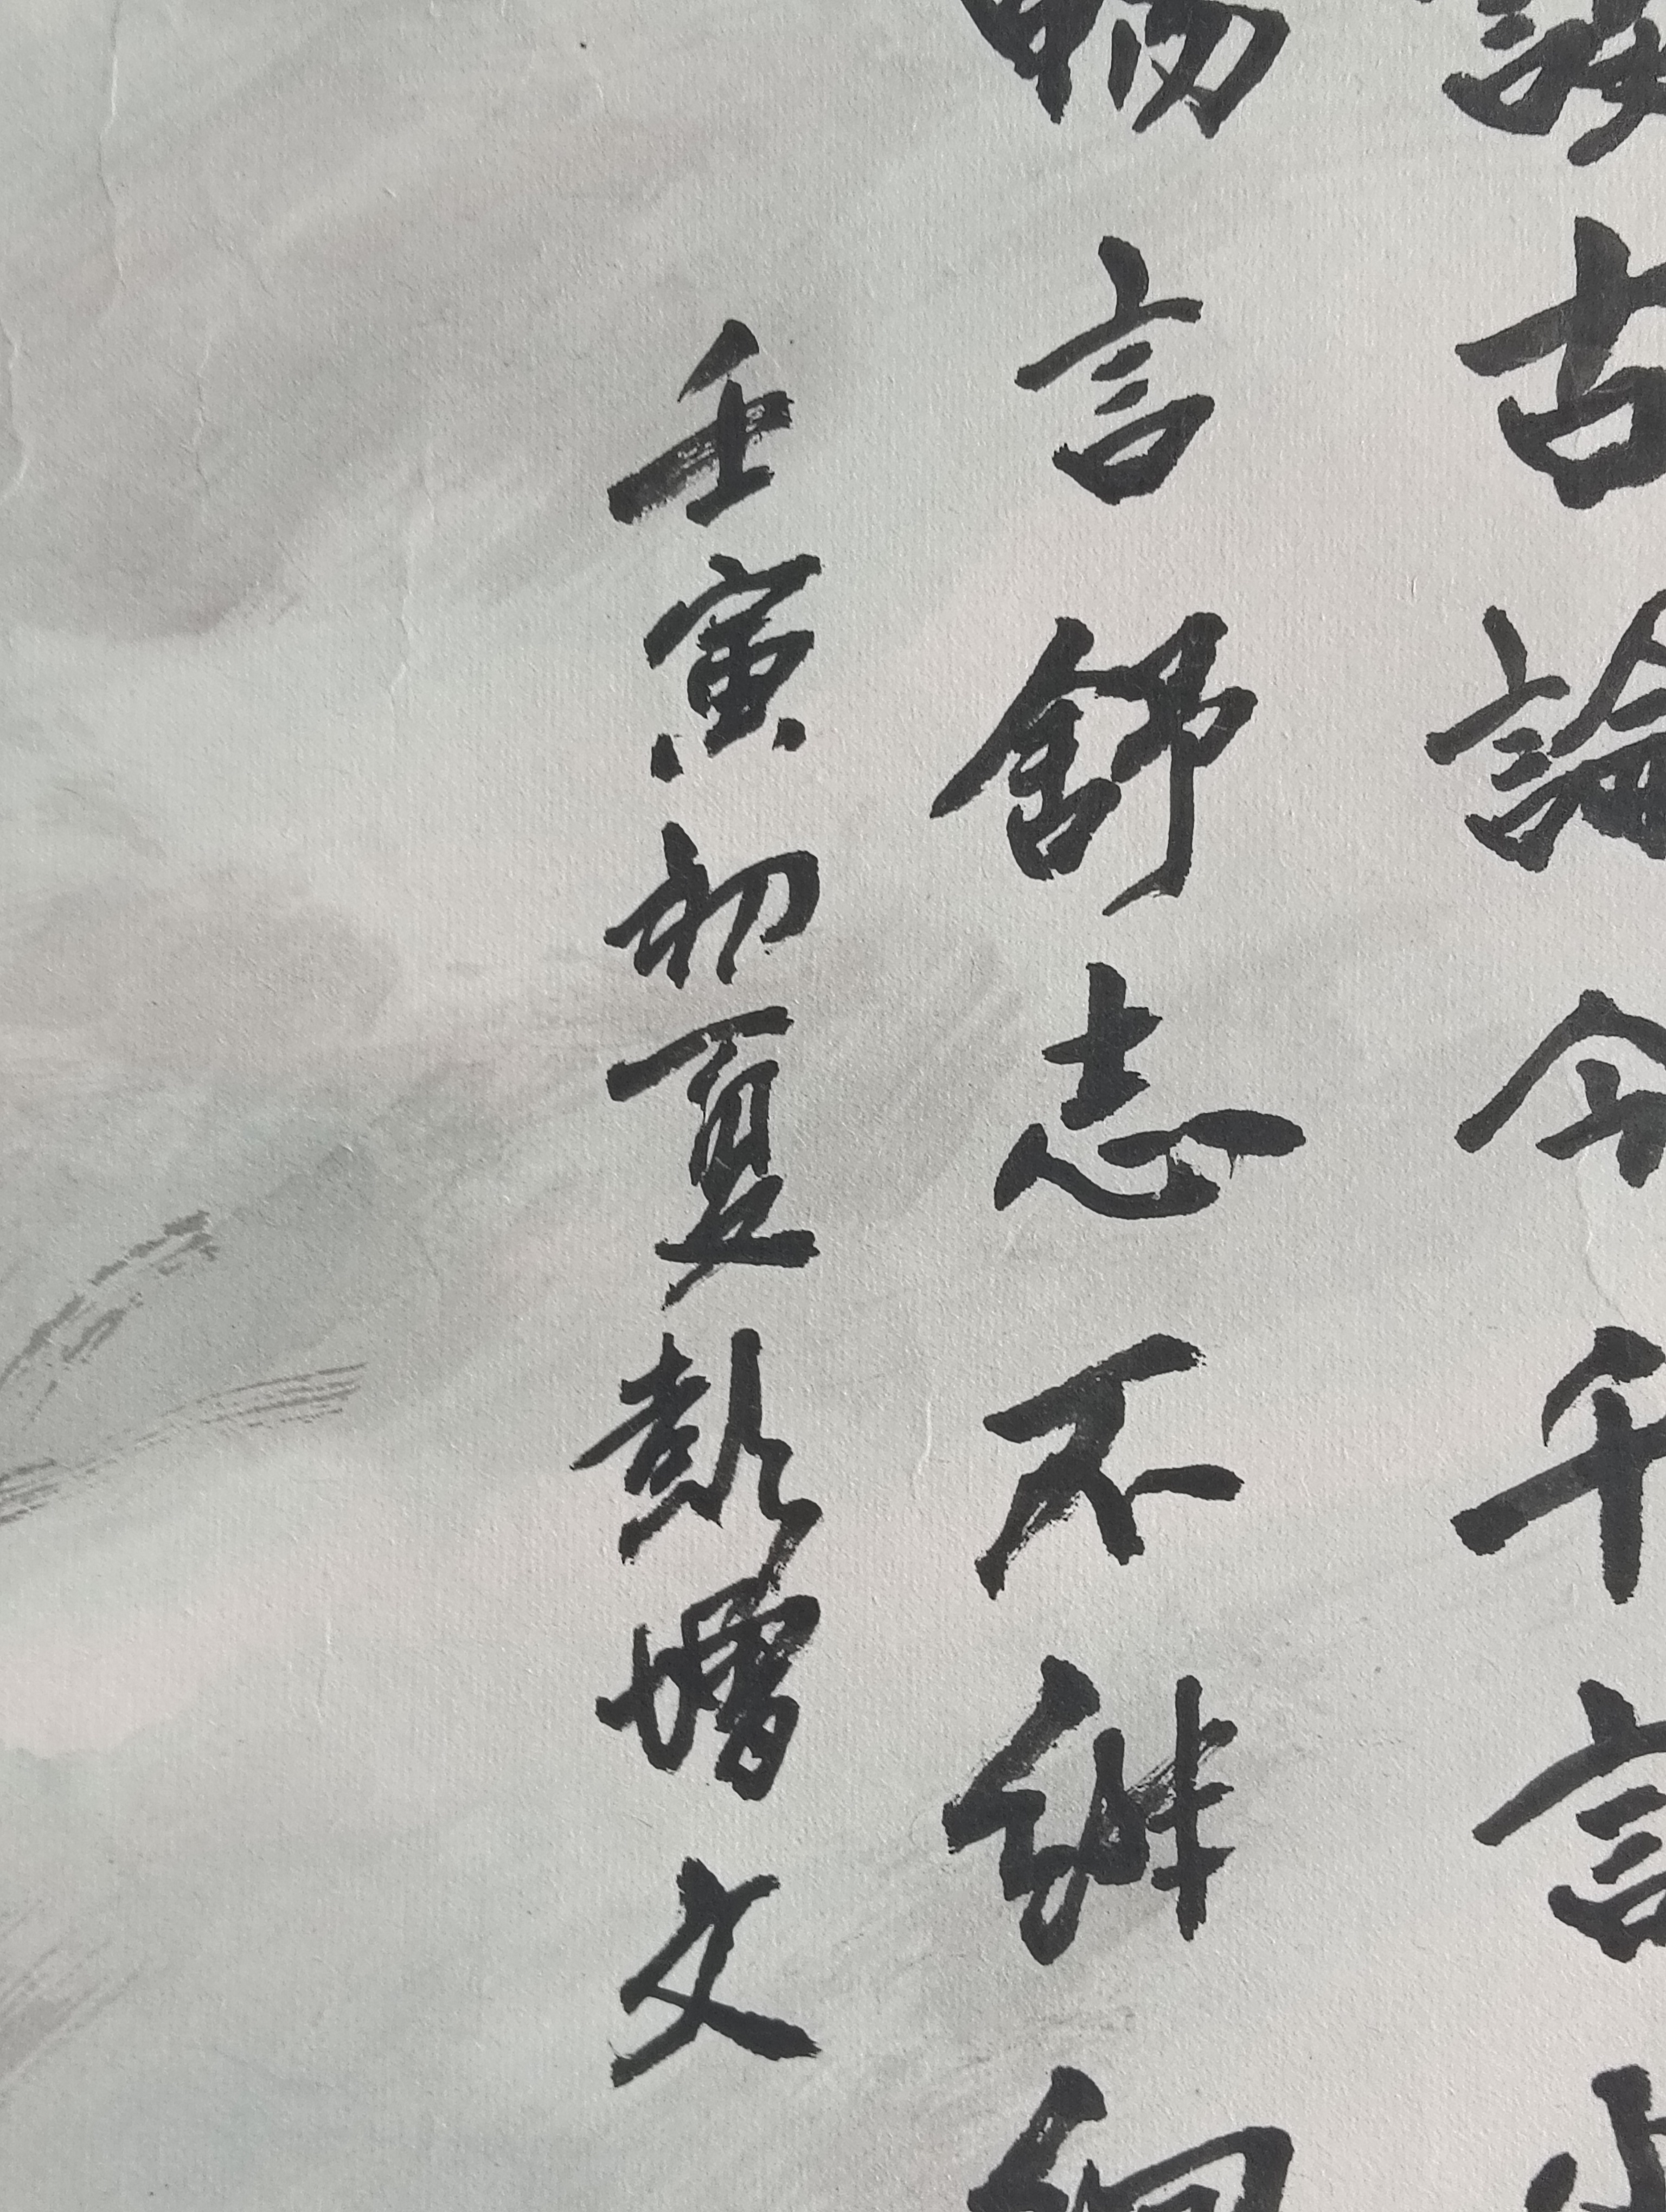 談古論今千言
暢言舒志不
壬寅初夏彭增文